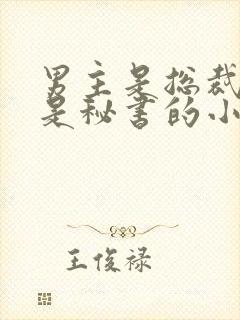 男主是总裁
是秘书的小
王俊禄